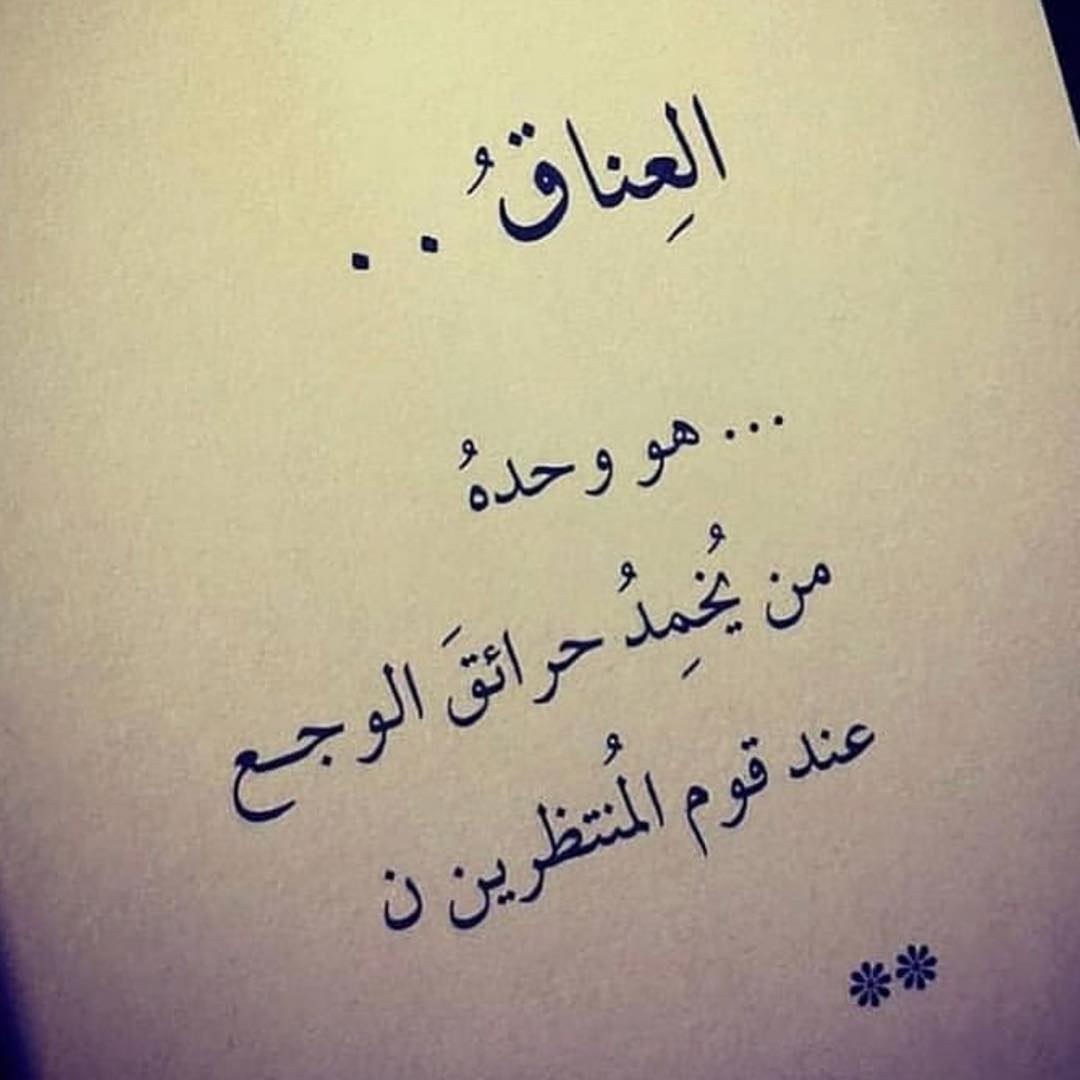 العِناقُ . .
... هو وحدهُ
من يُخمِدُ حرائقَ الوجـع
عند قوم المُنتظرين ن
**